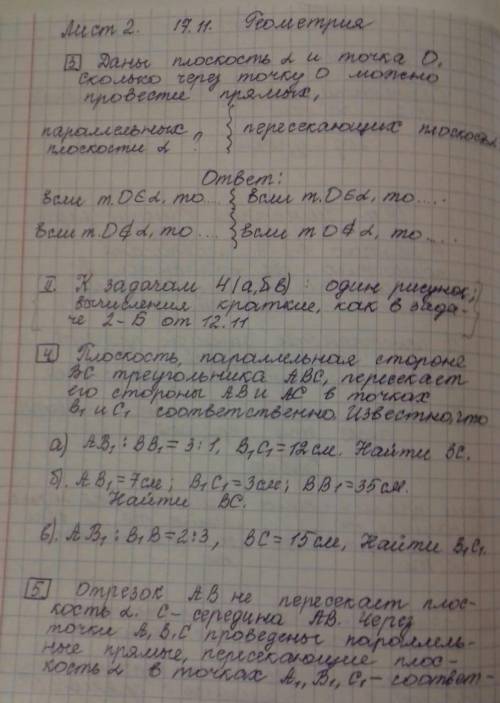 Лист 2. 17.11. Геометрия
3 Даны плоскость α и точка О,
сколько через точку О можно
провести прямых,
параллельных пересекающих плоскость α
плоскости α ?
Ответ:
если т.О∈α, то... если т.О∈α, то....
если т.О∉α, то.... если т О∉α, то.....
II. К задачам 4(а,б,в) : один рисунок,
вычисления краткие, как в зада-
че 2-Б от 12.11
4 Плоскость, параллельная стороне
ВС треугольника АВС, пересекает
его стороны АВ и АС в точках
В₁ и С₁ соответственно. Известно, что
а) АВ₁ : ВВ₁ = 3 : 1, В₁С₁ = 12 см. Найти ВС.
б). АВ₁ = 7см; В₁С₁ = 3см; ВВ₁ = 35см.
Найти ВС.
в). АВ₁ : В₁В = 2:3, ВС = 15 см, Найти В₁С₁.
5 Отрезок АВ не пересекает плос-
кость α. С - середина АВ. Через
точки А, В, С проведены параллель-
ные прямые, пересекающие плос-
кость α в точках А₁, В₁, С₁ - соответ-